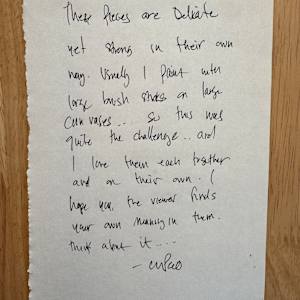 These Pieces are Delicate
yet strong in their own
way. Usually I Paint with
large brush strokes on large
Canvases... So this was
quite the challenge.. and
I love them each together
and on their own. I
hope you, the viewer finds
your own meaning in them.
think about it....